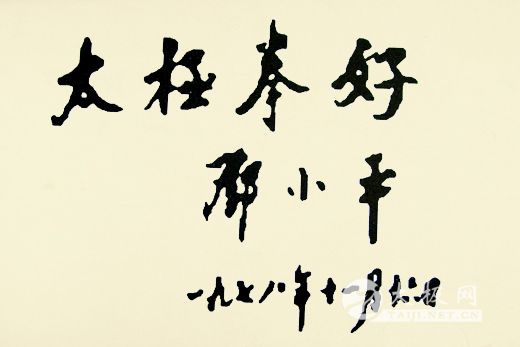 太极拳好
邓小平
一九七八年十一月十六日
太极网
TAIJI.NET.CN